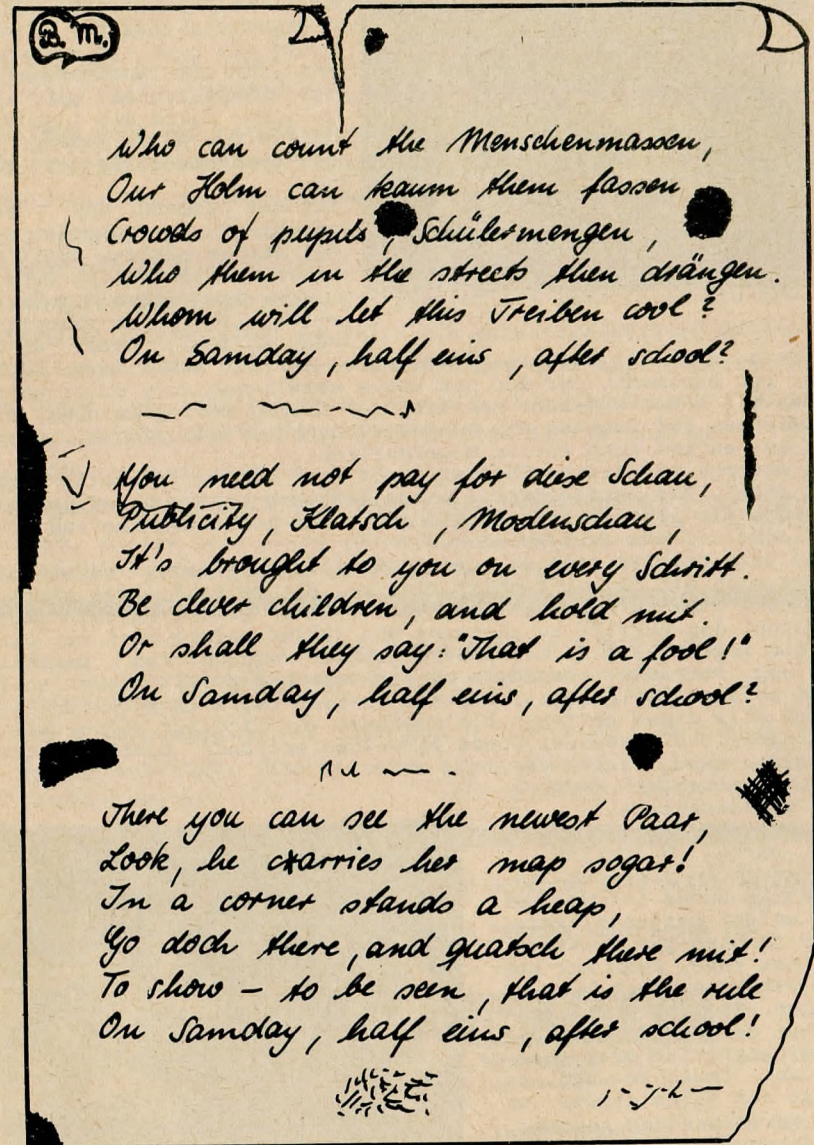 B. M.
Who can count the Menschenmassen,
Our Holm can kaum them fassen
Crowds of pupils, Schülermengen,
Who them in the streets then drängen.
Whom will let this Treiben cool?
On Samday, half eins, after school?
You need not pay for diese Schau,
Publicity, Klatsch, Modenschau,
It's brought to you on every Schritt.
Be clever children, and hold mit.
Or shall they say: "That is a fool!"
On Samday, half eins, after school?
There you can see the newest Paar,
Look, he carries her map sogar!
In a corner stands a heap,
Go doch there, and quatsch there mit!
To show – to be seen, that is the rule
On Samday, half eins, after school!